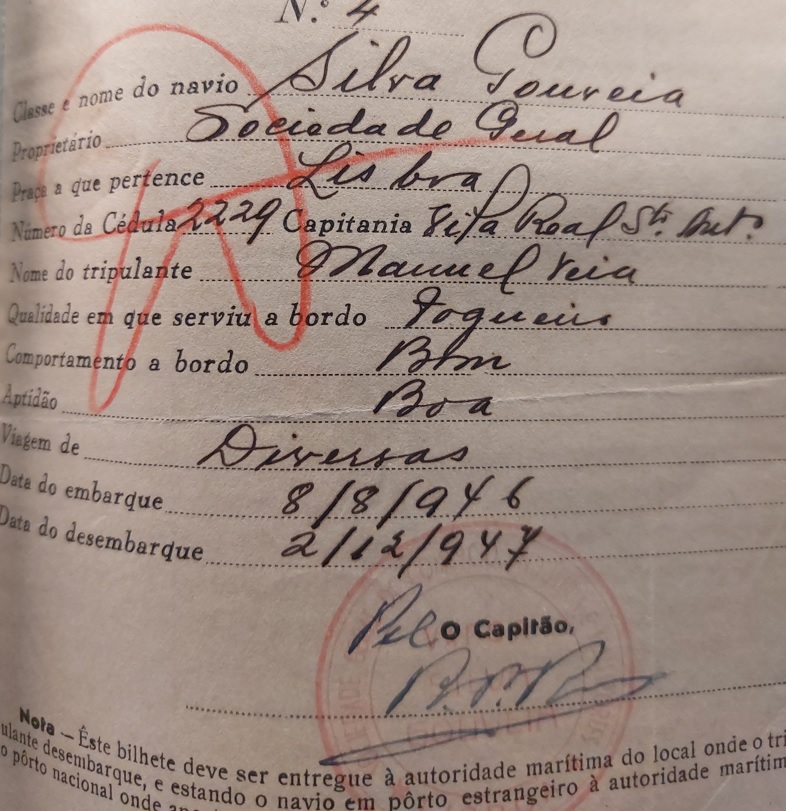 N.º 4
Classe e nome do navio Silva Gouveia
Proprietário Sociedade Geral
Praça a que pertence Lisboa
Número da Cédula 2229 Capitania Vila Real Stº Antº
Nome do tripulante Manuel
Qualidade em que serviu a bordo Fogueiro
Comportamento a bordo Bom
Aptidão Boa
Viagem de Diversas
Data do embarque 8/8/946
Data do desembarque 2/12/947
Pel O Capitão,
Nota — Êste bilhete deve ser entregue à autoridade marítima do local onde o tri
ulante desembarque, e estando o navio em pôrto estrangeiro à autoridade marítim
o pôrto nacional onde